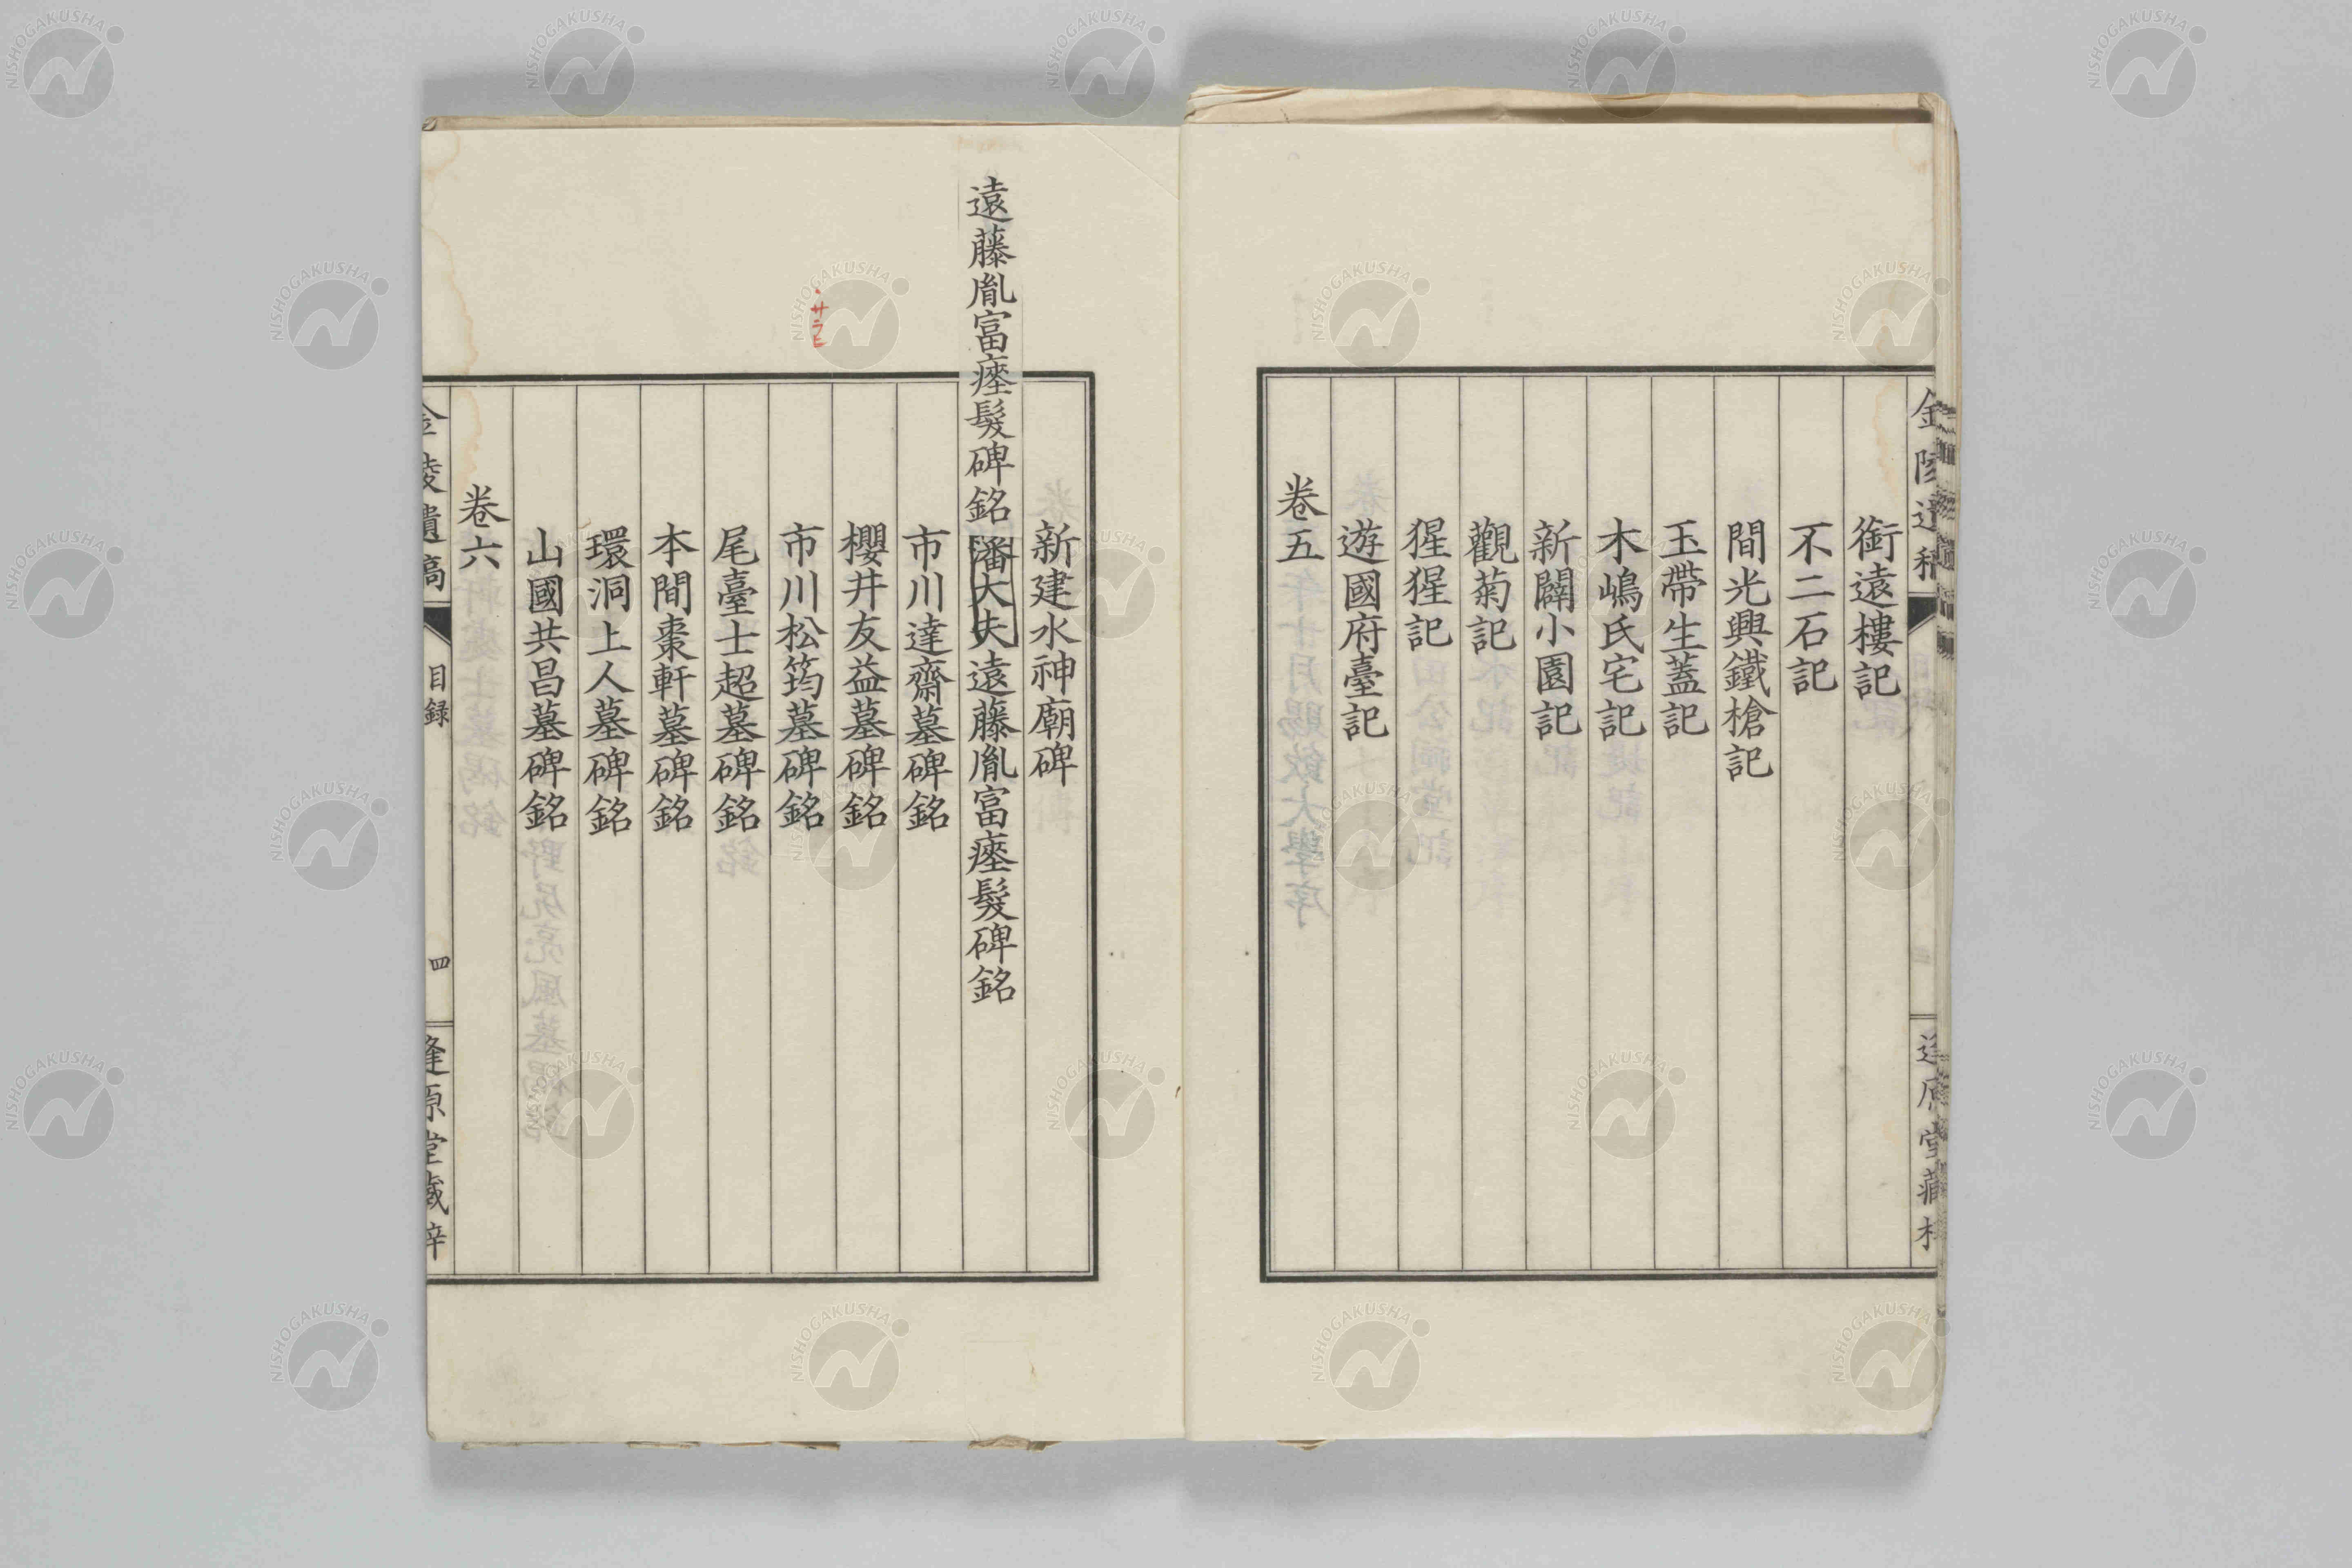 銜遠樓記
不二石記
間光興鐵槍記
玉帶生蓋記
木嶋氏宅記
新闢小園記
觀菊記
猩猩記
遊國府臺記
卷五
新建水神廟碑
遠藤胤富瘞髮碑銘
潘大夫遠藤胤富瘞髮碑銘
市川達齋墓碑銘
櫻井友益墓碑銘
市川松筠墓碑銘
尾臺士超墓碑銘
本間棗軒墓碑銘
環洞上人墓碑銘
山國共昌墓碑銘
卷六
金陵遺稿
目録
四
逢原堂藏梓
NISHOGAKUSHA